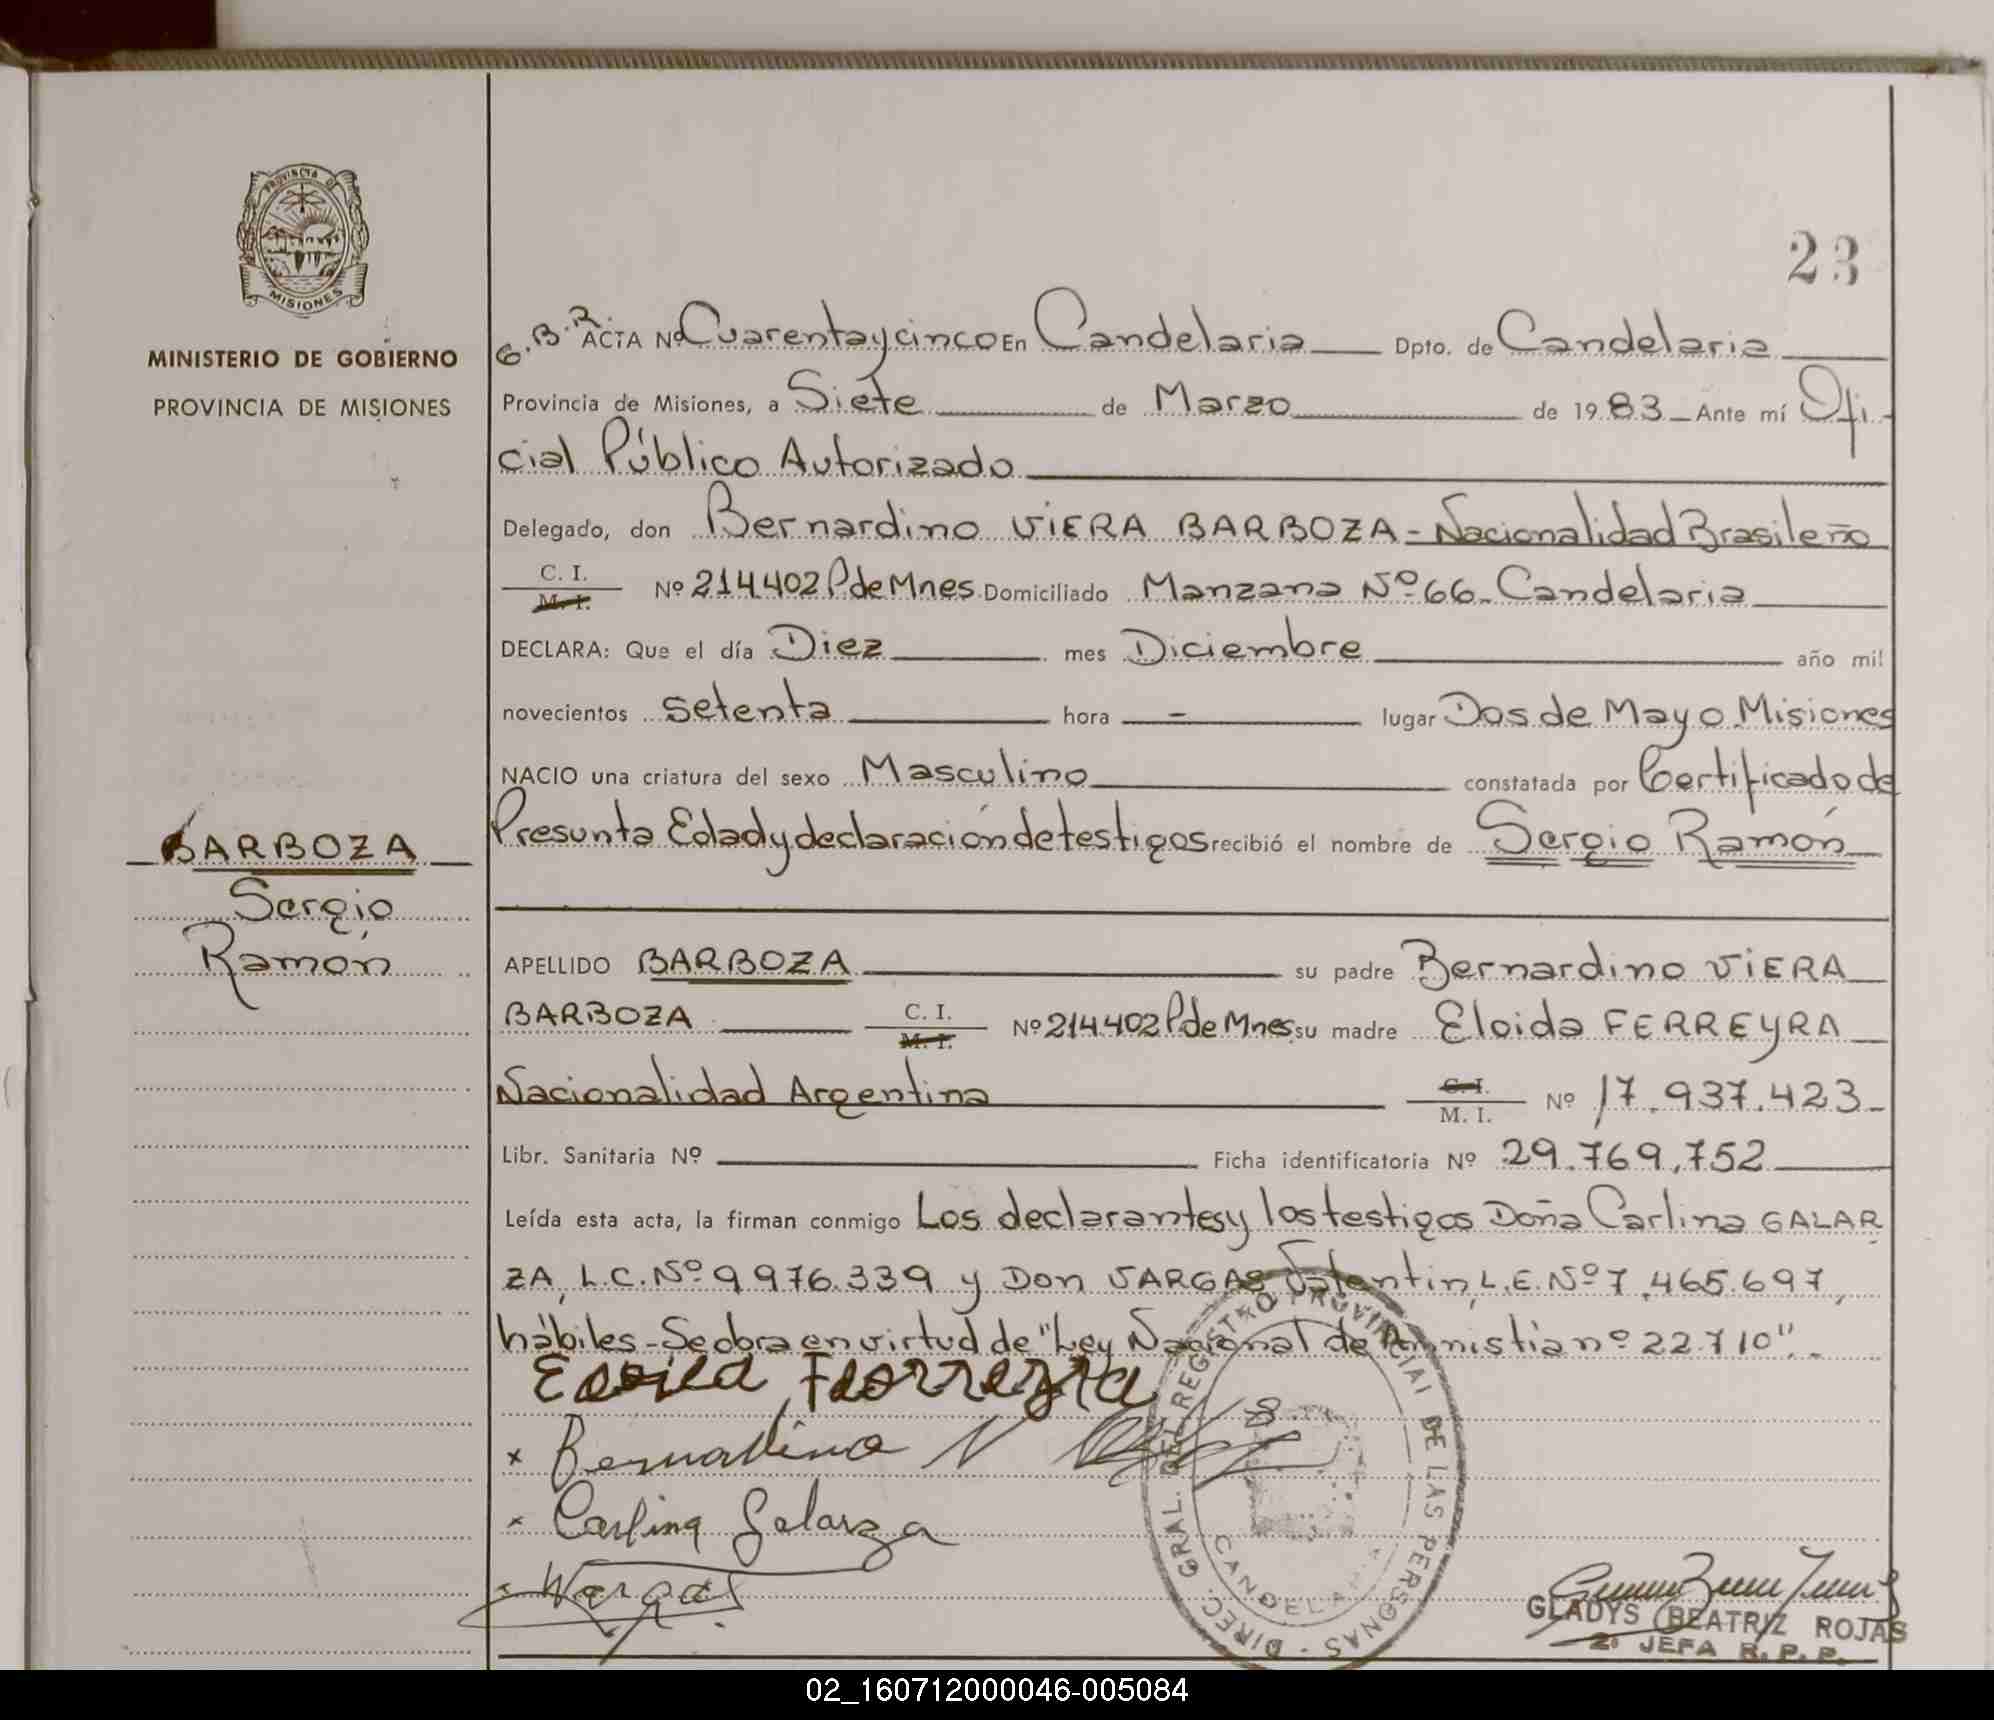 PROVINCIA DE
MISIONES
MINISTERIO DE GOBIERNO
PROVINCIA DE MISIONES
23
G.B.R ACTA Nº Cuarenta y cinco En Candelaria Dpto. de Candelaria
Provincia de Misiones, a Siete de Marzo de 1983 Ante mí Ofi
cial Público Autorizado
Delegado, don Bernardino VIERA BARBOZA - Nacionalidad Brasileño
C. I.
M. I. Nº 214.402 P de Mnes. Domiciliado Manzana Nº 66 - Candelaria
DECLARA: Que el día Diez mes Diciembre año mil
novecientos setenta hora - lugar Dos de Mayo Misiones
NACIO una criatura del sexo Masculino constatada por Certificado de
Presunta Edad y declaración de testigos recibió el nombre de Sergio Ramón
BARBOZA
Sergio
Ramón
APELLIDO BARBOZA su padre Bernardino VIERA
BARBOZA C. I.
M. I. Nº 214.402 P de Mnes. su madre Eloida FERREYRA
Nacionalidad Argentina C. I.
M. I. Nº 17.937.423-
Libr. Sanitaria Nº Ficha identificatoria Nº 29.769.752
Leída esta acta, la firman conmigo Los declarantes y los testigos Doña Carlina GALAR
ZA, L.C. Nº 9976.339 y Don VARGAS Valentin, L.E. Nº 7.465.697,
hábiles - Se obra en virtud de "Ley Nacional de Amnistía nº 22.710".
Ferreyra
x Bernardino V
x Carlina Galarza
x Vargas
DIREC. GRAL. DEL REGISTRO PROVINCIAL DE LAS PERSONAS -
CANDELARIA
GLADYS BEATRIZ ROJAS
2º JEFA R. P. P.
02_160712000046-005084